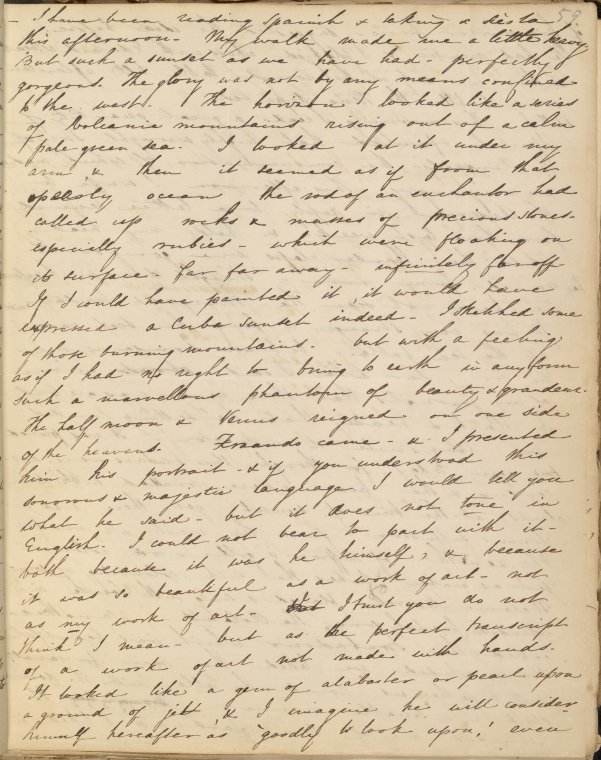 59
- I have been reading Spanish & taking a siesta
this afternoon - My walk made me a little heavy,
But such a sunset as we have had - perfectly
gorgeous. The glory was not by any means confined
to the west. The horizon looked like a series
of Volcanic mountains rising out of a calm
pale green sea. I looked at it under my
arm & then it seemed as if from that
pearly ocean the rod of an enchantor had
called up rocks & masses of precious stones -
especially rubies - which were floating on
its surface - far far away - infinitely far off
If I could have painted it, it would have
expressed a Cuba sunset indeed - I sketched some
of those burning mountains - but with a feeling
as if I had no right to bring to earth in any form
such a marvellous phantom of beauty & grandeur.
The half moon & Venus reigned on one side
of the heavens. Fernando came - & I presented
him his portrait - & if you understood this
sonorous & majestic language I would tell you
what he said - but it does not tone in
English. I could not bear to part with it -
both because it was he himself, & because
it was so beautiful as a work of art - not
as my work of art - I trust you do not
think I mean - but as the perfect transcript
of a work of art not made with hands.
It looked like a gem of alabaster or pearl upon
a ground of jet, & I imagine he will consider
himself hereafter as "goodly to look upon," even